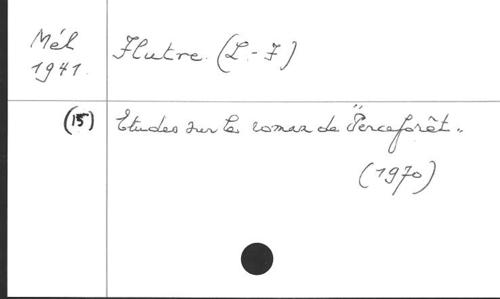 Mél
1941.
Flutre. (L.-F)
(15)
Etudes sur le roman de "Perceforêt".
(1970)